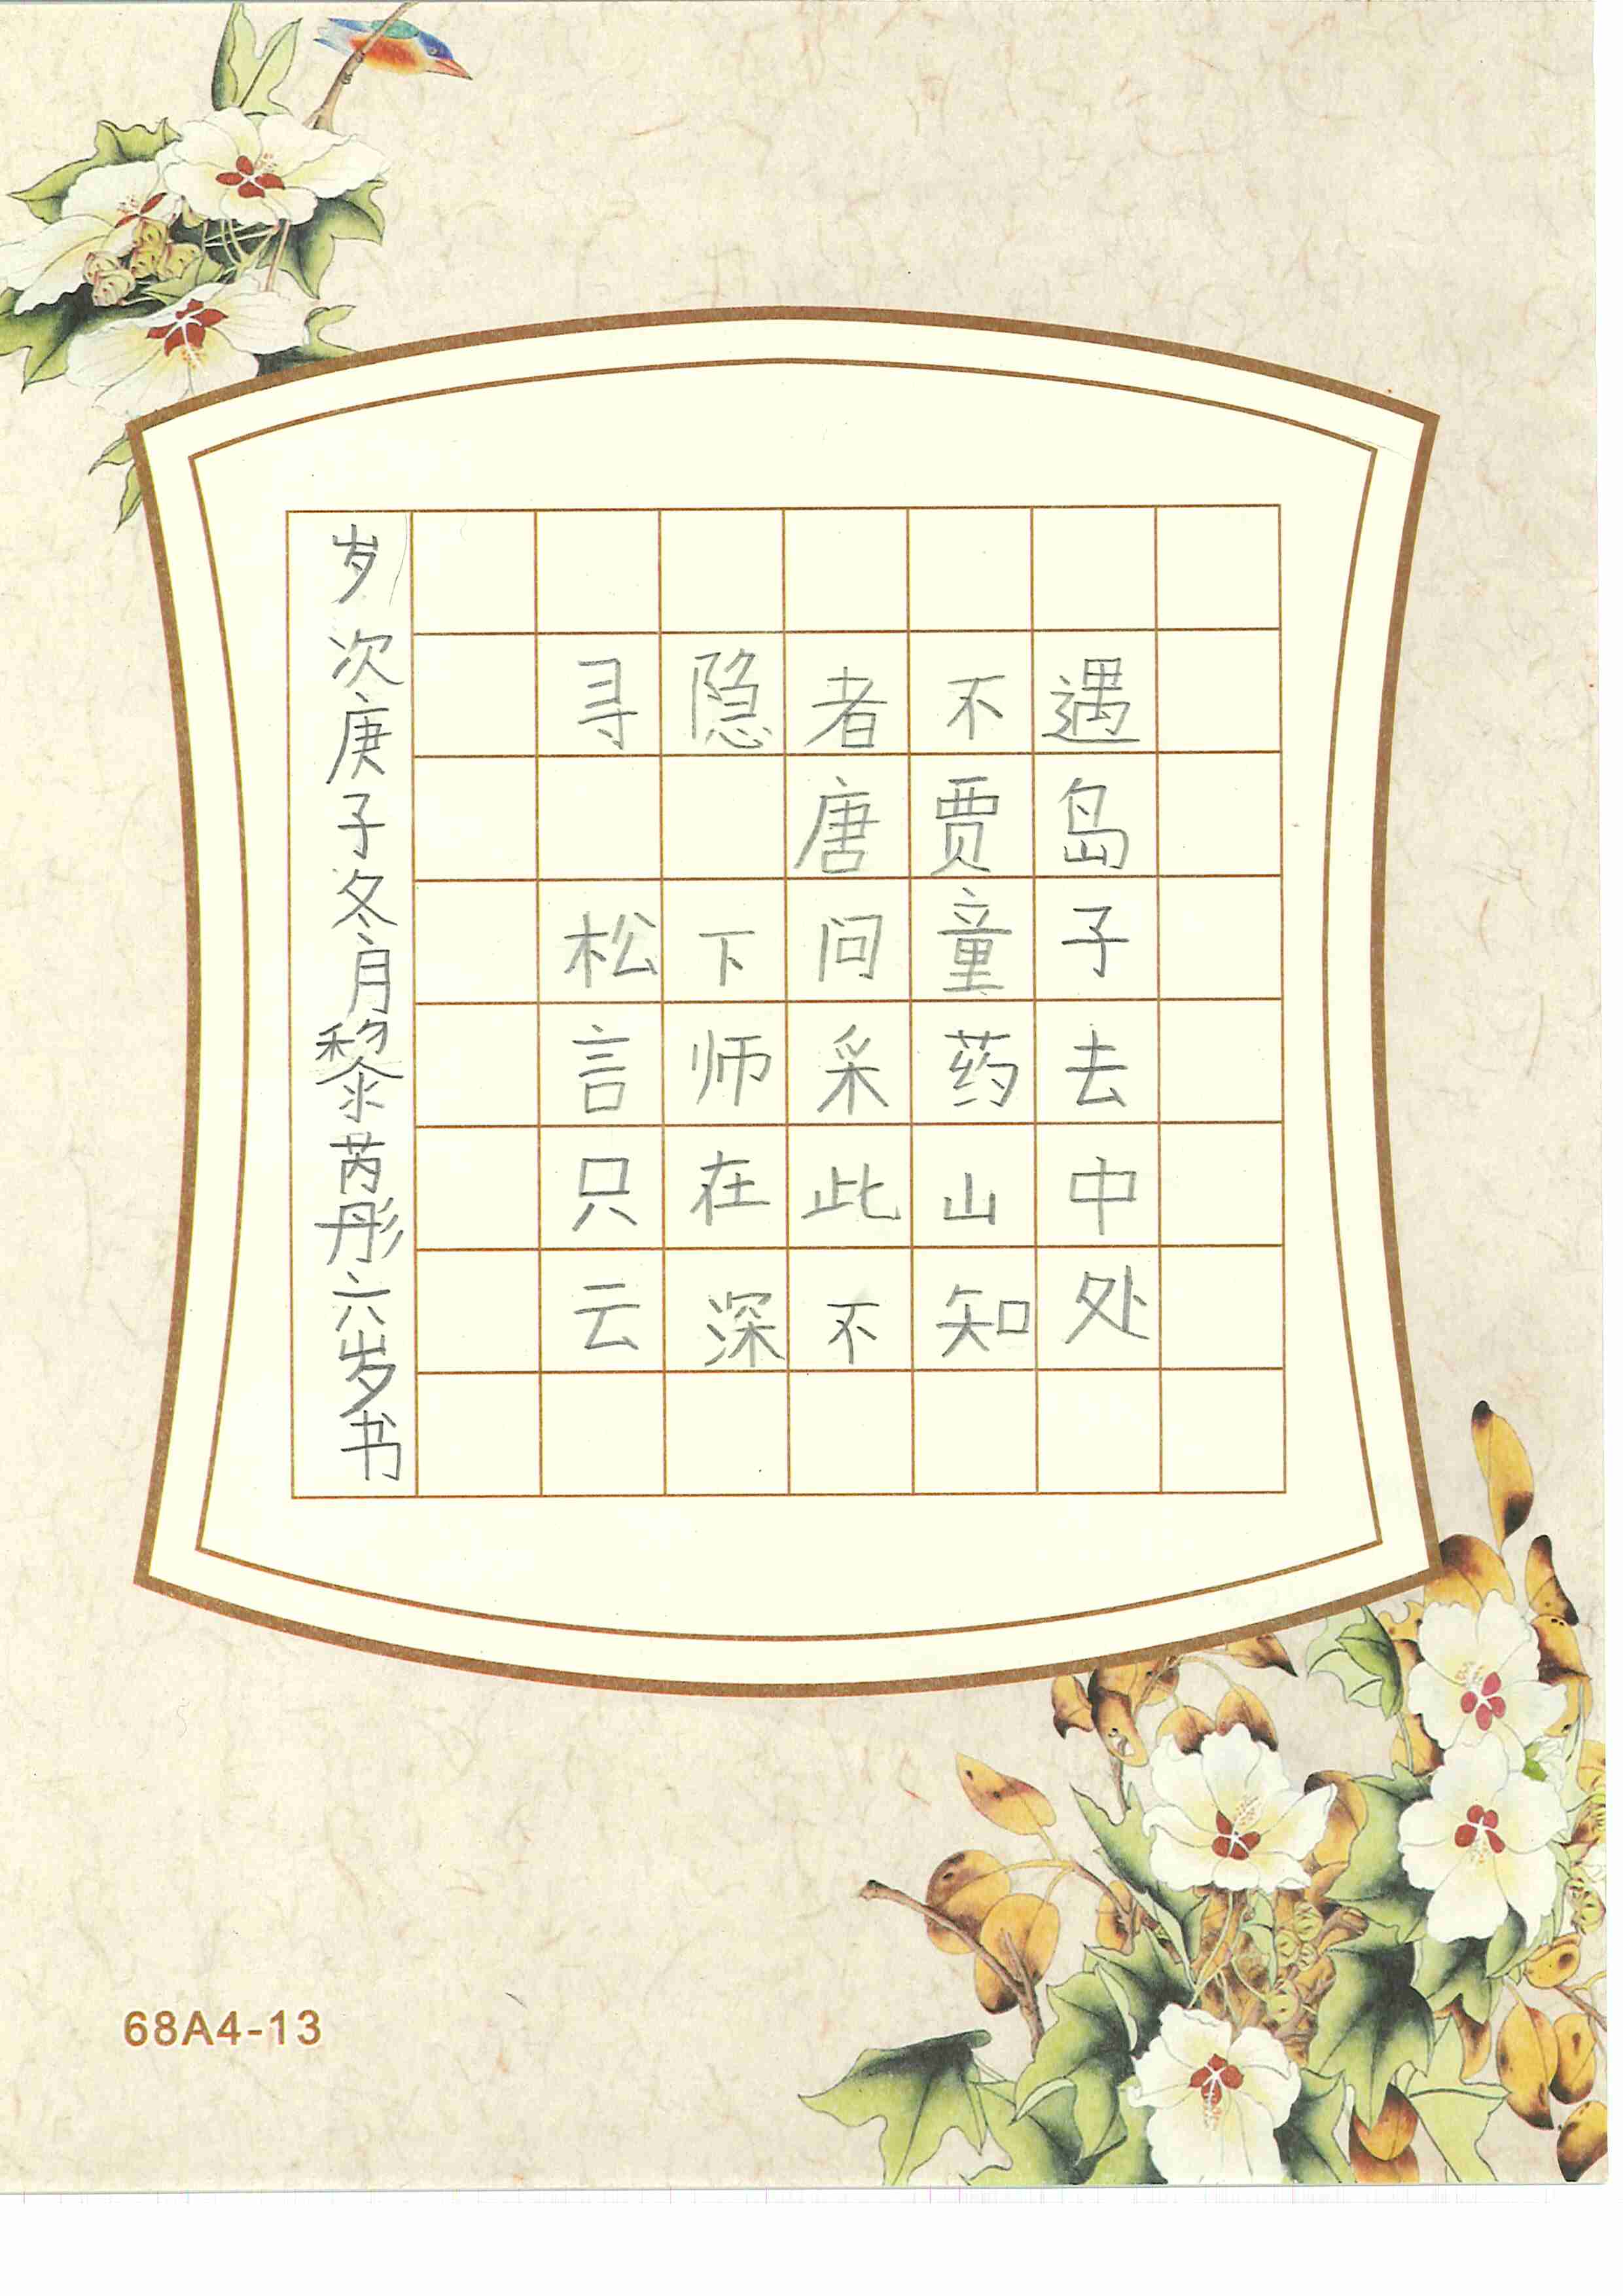 寻隐者不遇
唐贾岛
松下问童子
言师采药去
只在此山中
云深不知处
岁次庚子冬月黎芮彤六岁书
68A4-13